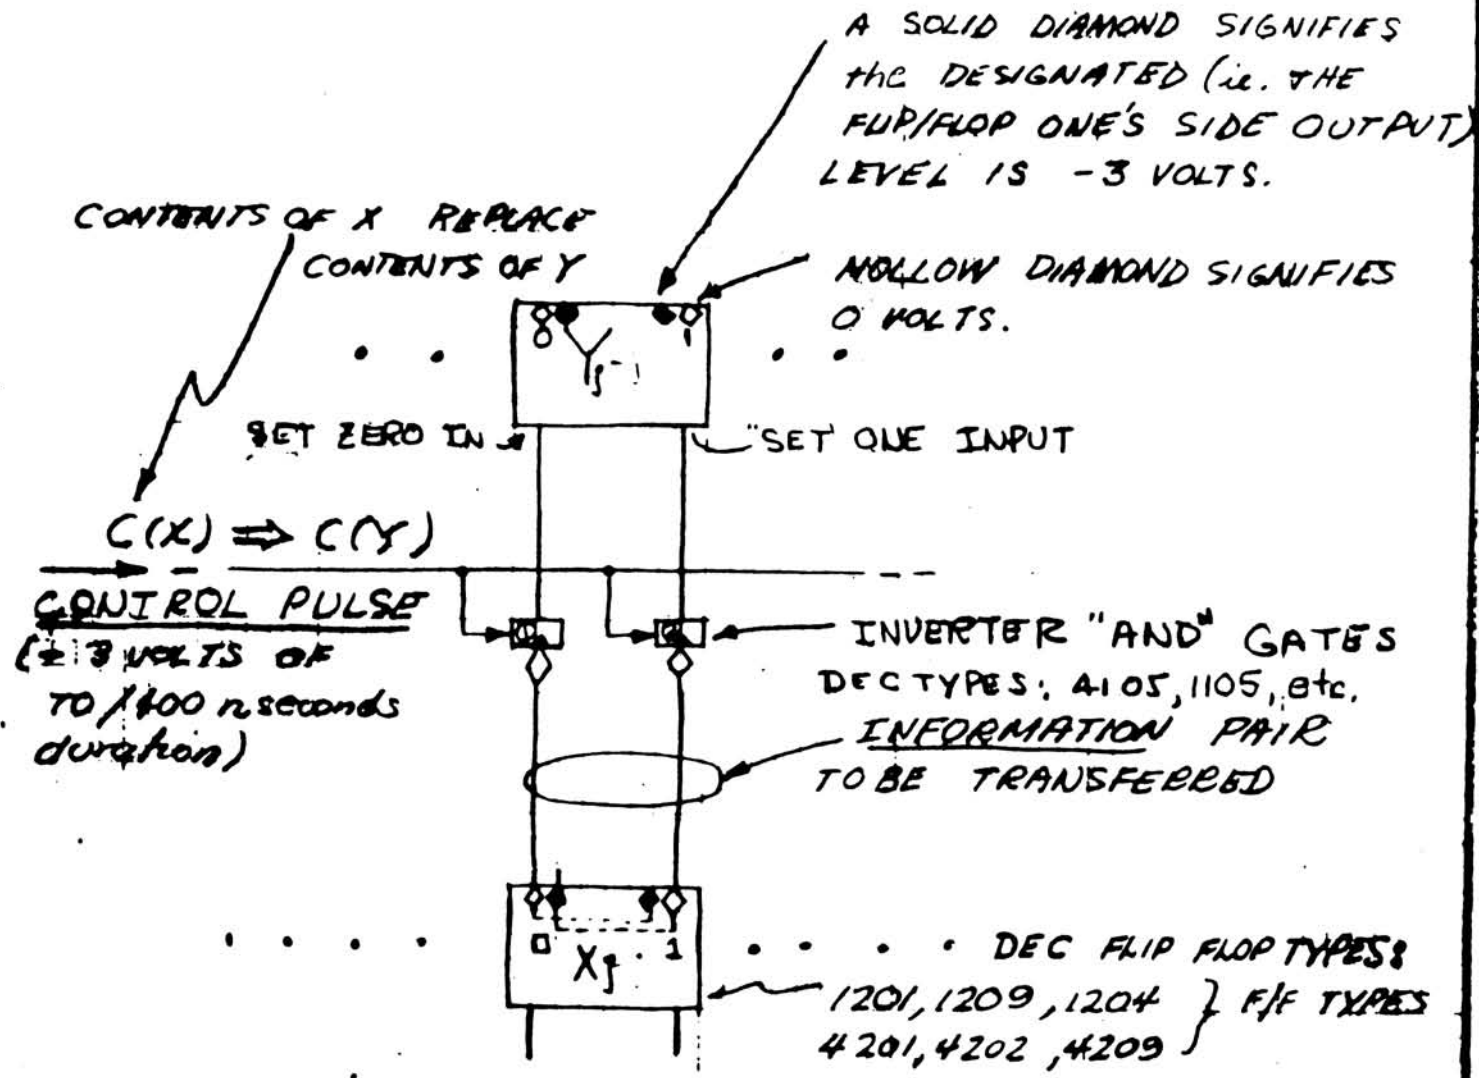 A SOLID DIAMOND SIGNIFIES
the DESIGNATED (ie. THE
FLIP/FLOP ONE'S SIDE OUTPUT)
LEVEL IS -3 VOLTS.
CONTENTS OF X REPLACE
CONTENTS OF Y
HOLLOW DIAMOND SIGNIFIES
0 VOLTS.
0 1
Y
SET ZERO IN
"SET ONE INPUT
C(X) ⇒ C(Y)
CONTROL PULSE
3 VOLTS OF
TO 400 nseconds
duration)
INVERTER "AND" GATES
DEC TYPES: 4105, 1105, etc.
INFORMATION PAIR
TO BE TRANSFERRED
0 1
Xj
DEC FLIP FLOP TYPES:
1201, 1209, 1204 } F/F TYPES
4201, 4202, 4209